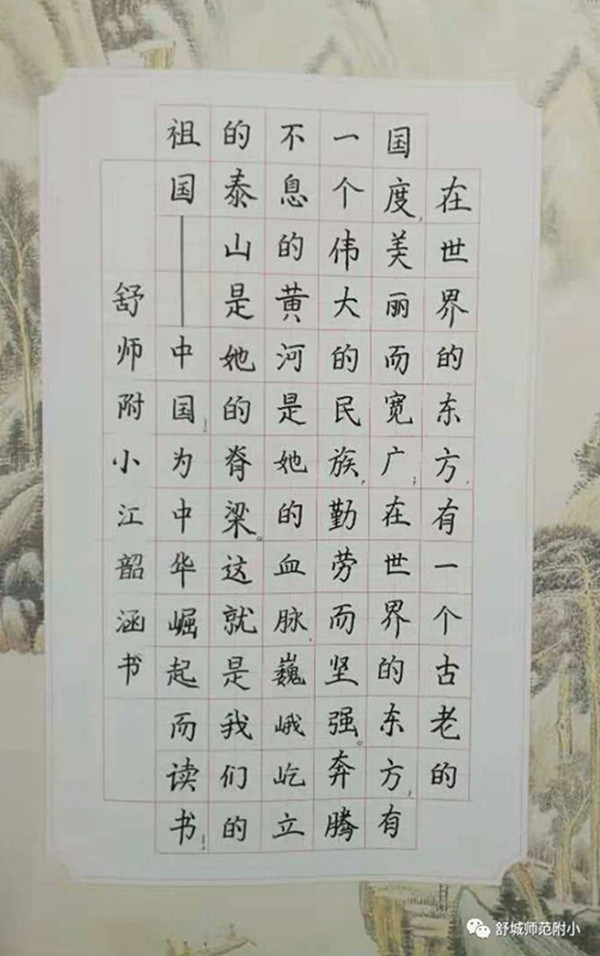 在世界的东方,有一个古老的
国度,美丽而宽广;在世界的东方,有
一个伟大的民族,勤劳而坚强。奔腾
不息的黄河是她的血脉,巍峨屹立
的泰山是她的脊梁。这就是我们的
祖国——中国!为中华崛起而读书!
舒师附小江韶涵书
舒城师范附小